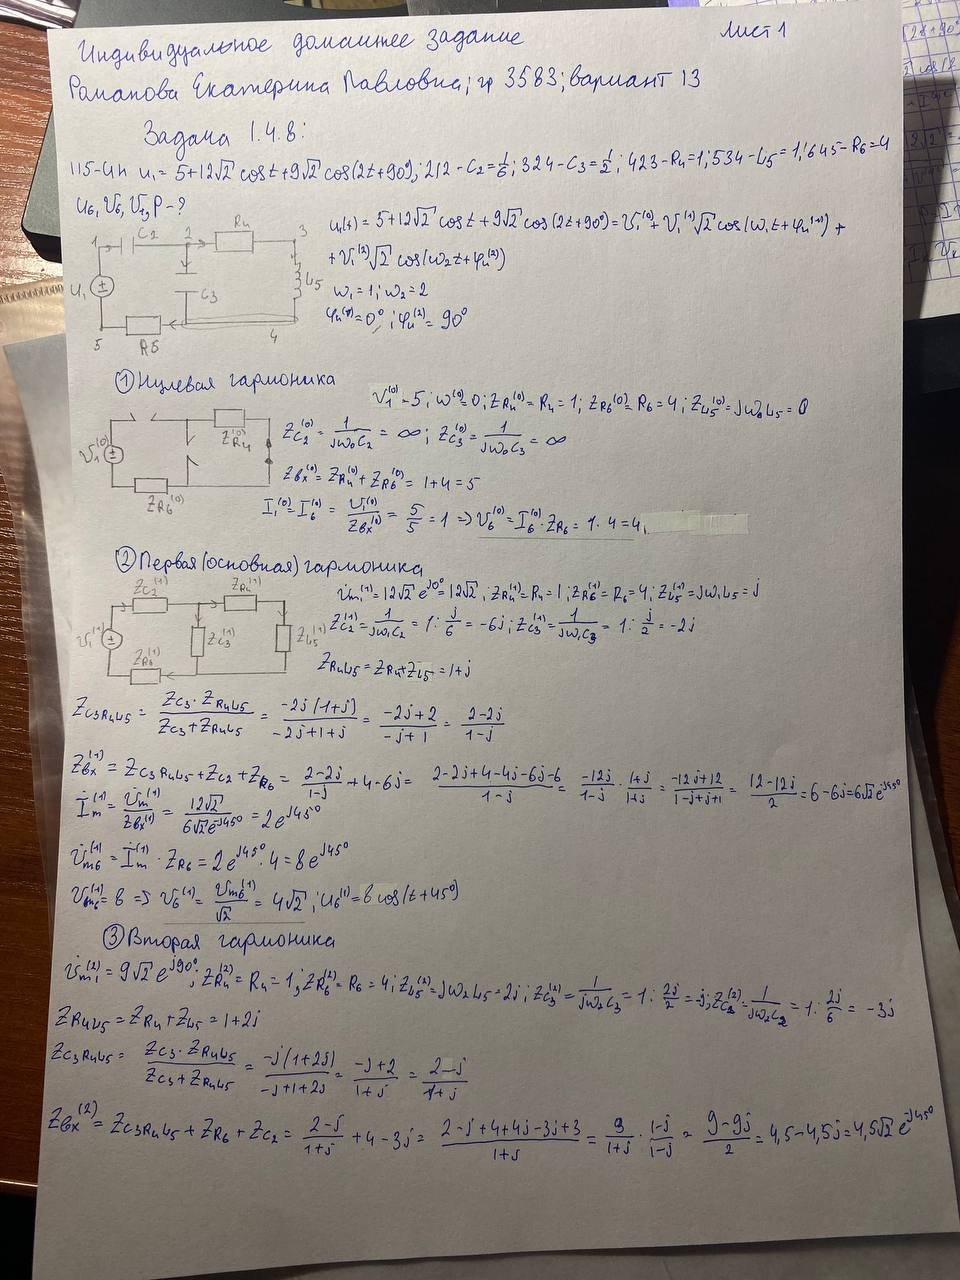 Индивидуальное домашнее задание Лист 1
Романова Екатерина Павловна; гр 3583; вариант 13
Задача 1.4.8:
115-ИН u₁ = 5+12√2 cost+9√2 cos(2t+90); 212 - C₂ = 1/6; 324 - C₃ = 1/2; 423 - R₄ = 1; 534 - L₅ = 1; 645 - R₆ = 4
u₆, V₆, V₁, P - ?
1 C₂ 2 R₄ 3
U₁ C₃ L₅
5 R6 4
u₁(t) = 5+12√2 cost+9√2 cos(2t+90°) = V₁⁽⁰⁾ + V₁⁽¹⁾√2 cos(ω₁t+φᵤ⁽¹⁾) +
+ V₁⁽²⁾√2 cos(ω₂t+φᵤ⁽²⁾)
ω₁ = 1; ω₂ = 2
φᵤ⁽¹⁾ = 0°; φᵤ⁽²⁾ = 90°
① Нулевая гармоника
V₁⁽⁰⁾ = 5; ω⁽⁰⁾ = 0; Z_R₄⁽⁰⁾ = R₄ = 1; Z_R₆⁽⁰⁾ = R₆ = 4; Z_L₅⁽⁰⁾ = jω₀L₅ = 0
V₁⁽⁰⁾ Z_R₄⁽⁰⁾ Z_R₆⁽⁰⁾
Z_C₂⁽⁰⁾ = 1/(jω₀C₂) = ∞; Z_C₃⁽⁰⁾ = 1/(jω₀C₃) = ∞
Zвх⁽⁰⁾ = Z_R₄⁽⁰⁾ + Z_R₆⁽⁰⁾ = 1+4 = 5
I₁⁽⁰⁾ = I₆⁽⁰⁾ = V₁⁽⁰⁾/Zвх⁽⁰⁾ = 5/5 = 1 => V₆⁽⁰⁾ = I₆⁽⁰⁾·Z_R₆ = 1·4 = 4
② Первая (основная) гармоника
Z_C₂⁽¹⁾ Z_R₄⁽¹⁾
V₁⁽¹⁾ Z_C₃⁽¹⁾ Z_L₅⁽¹⁾
Z_R₆⁽¹⁾
U̇m₁⁽¹⁾ = 12√2 e^j0° = 12√2; Z_R₄⁽¹⁾ = R₄ = 1; Z_R₆⁽¹⁾ = R₆ = 4; Z_L₅⁽¹⁾ = jω₁L₅ = j
Z_C₂⁽¹⁾ = 1/(jω₁C₂) = 1 : j/6 = -6j; Z_C₃⁽¹⁾ = 1/(jω₁C₃) = 1 : j/2 = -2j
Z_R₄L₅ = Z_R₄+Z_L₅ = 1+j
Z_C₃R₄L₅ = (Z_C₃·Z_R₄L₅)/(Z_C₃+Z_R₄L₅) = (-2j(1+j))/(-2j+1+j) = (-2j+2)/(-j+1) = (2-2j)/(1-j)
Zвх⁽¹⁾ = Z_C₃R₄L₅+Z_C₂+Z_R₆ = (2-2j)/(1-j) + 4-6j = (2-2j+4-4j-6j-6)/(1-j) = (-12j)/(1-j) · (1+j)/(1+j) = (-12j+12)/(1-j+j+1) = (12-12j)/2 = 6-6j = 6√2e^-j45°
İm⁽¹⁾ = U̇m⁽¹⁾/Zвх⁽¹⁾ = 12√2/(6√2e^-j45°) = 2e^j45°
U̇m₆⁽¹⁾ = İm⁽¹⁾·Z_R₆ = 2e^j45°·4 = 8e^j45°
Um₆⁽¹⁾ = 8 => V₆⁽¹⁾ = Um₆⁽¹⁾/√2 = 4√2; u₆⁽¹⁾ = 8 cos(t+45°)
③ Вторая гармоника
U̇m₁⁽²⁾ = 9√2 e^j90°; Z_R₄⁽²⁾ = R₄ = 1; Z_R₆⁽²⁾ = R₆ = 4; Z_L₅⁽²⁾ = jω₂L₅ = 2j; Z_C₃⁽²⁾ = 1/(jω₂C₃) = 1 : 2j/2 = -j; Z_C₂⁽²⁾ = 1/(jω₂C₂) = 1 : 2j/6 = -3j
Z_R₄L₅ = Z_R₄+Z_L₅ = 1+2j
Z_C₃R₄L₅ = (Z_C₃·Z_R₄L₅)/(Z_C₃+Z_R₄L₅) = (-j(1+2j))/(-j+1+2j) = (-j+2)/(1+j) = (2-j)/(1+j)
Zвх⁽²⁾ = Z_C₃R₄L₅+Z_R₆+Z_C₂ = (2-j)/(1+j) + 4-3j = (2-j+4+4j-3j+3)/(1+j) = 9/(1+j) · (1-j)/(1-j) = (9-9j)/2 = 4,5-4,5j = 4,5√2 e^-j45°